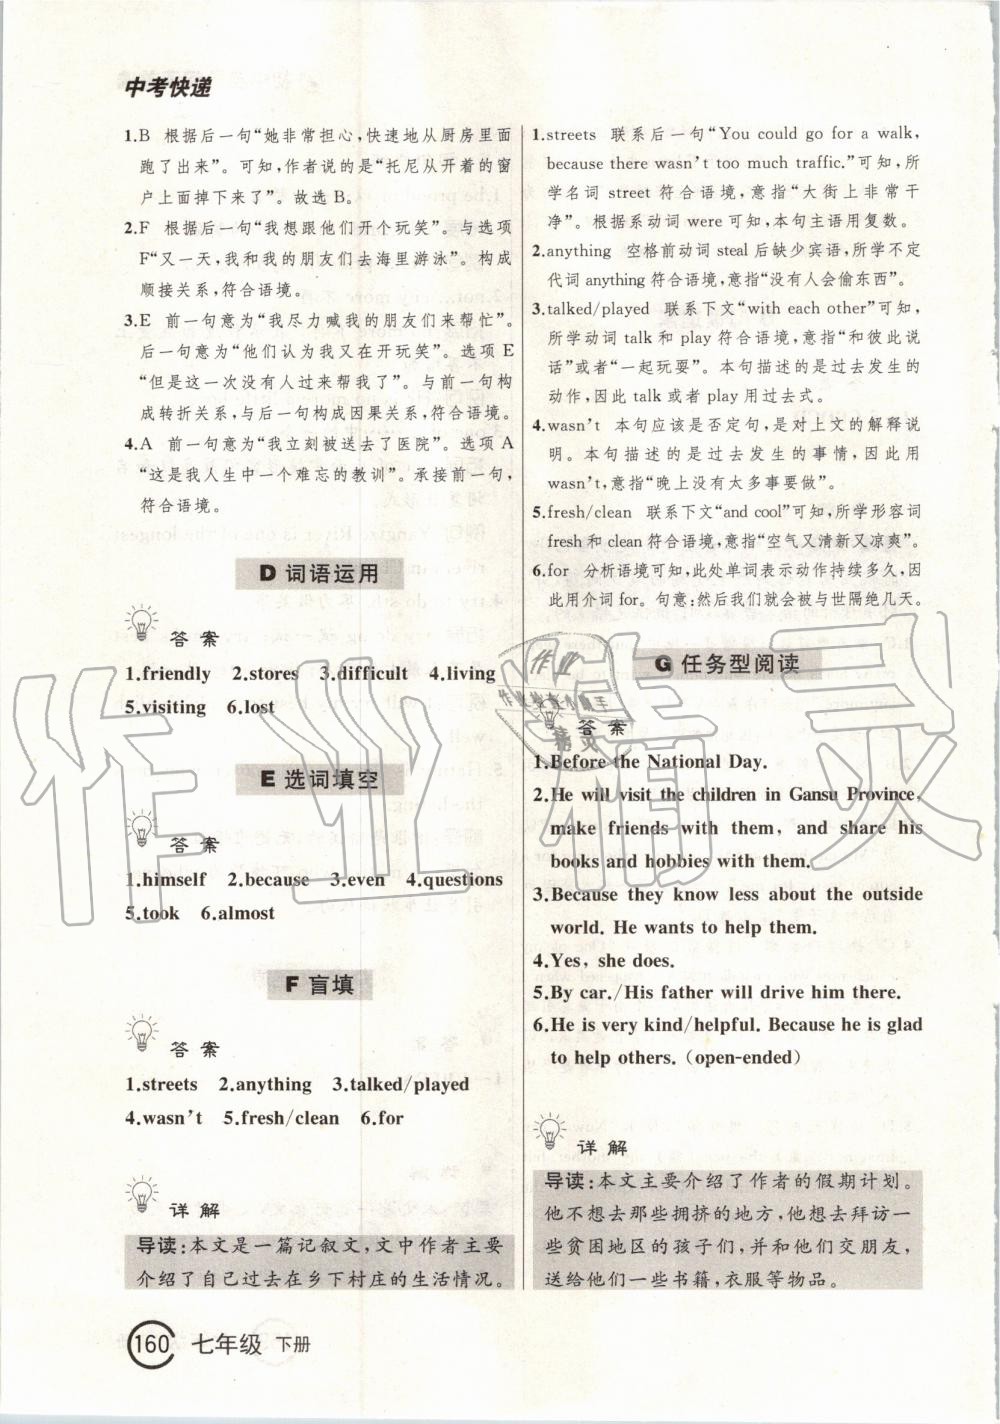 中考快递
1.B 根据后一句“她非常担心,快速地从厨房里面
跑了出来”。可知,作者说的是“托尼从开着的窗
户上面掉下来了”。故选 B。
2.F 根据后一句“我想跟他们开个玩笑”。与选项
F“又一天,我和我的朋友们去海里游泳”。构成
顺接关系,符合语境。
3.E 前一句意为“我尽力喊我的朋友们来帮忙”。
后一句意为“他们认为我又在开玩笑”。选项 E
“但是这一次没有人过来帮我了”。与前一句构
成转折关系,与后一句构成因果关系,符合语境。
4.A 前一句意为“我立刻被送去了医院”。选项 A
“这是我人生中一个难忘的教训”。承接前一句,
符合语境。
D 词语运用
答案
1.friendly 2.stores 3.difficult 4.living
5.visiting 6.lost
E 选词填空
答案
1.himself 2.because 3.even 4.questions
5.took 6.almost
F 盲填
答案
1.streets 2.anything 3.talked/played
4.wasn't 5.fresh/clean 6.for
详解
导读:本文是一篇记叙文,文中作者主要
介绍了自己过去在乡下村庄的生活情况。
1.streets 联系后一句“You could go for a walk,
because there wasn't too much traffic.”可知,所
学名词 street 符合语境,意指“大街上非常干
净”。根据系动词 were 可知,本句主语用复数。
2.anything 空格前动词 steal 后缺少宾语,所学不定
代词 anything 符合语境,意指“没有人会偷东西”。
3.talked/played 联系下文“with each other”可知,
所学动词 talk 和 play 符合语境,意指“和彼此说
话”或者“一起玩耍”。本句描述的是过去发生的
动作,因此 talk 或者 play 用过去式。
4.wasn't 本句应该是否定句,是对上文的解释说
明。本句描述的是过去发生的事情,因此用
wasn't,意指“晚上没有太多事要做”。
5.fresh/clean 联系下文“and cool”可知,所学形容词
fresh 和 clean 符合语境,意指“空气又清新又凉爽”。
6.for 分析语境可知,此处单词表示动作持续多久,因
此用介词 for。句意:然后我们就会被与世隔绝几天。
G 任务型阅读
答案
1.Before the National Day.
2.He will visit the children in Gansu Province,
make friends with them, and share his
books and hobbies with them.
3.Because they know less about the outside
world. He wants to help them.
4.Yes, she does.
5.By car./His father will drive him there.
6.He is very kind/helpful. Because he is glad
to help others. (open-ended)
详解
导读:本文主要介绍了作者的假期计划。
他不想去那些拥挤的地方,他想去拜访一
些贫困地区的孩子们,并和他们交朋友,
送给他们一些书籍,衣服等物品。
160 七年级 下册
作业精灵
作业
作业检查小助手
精灵